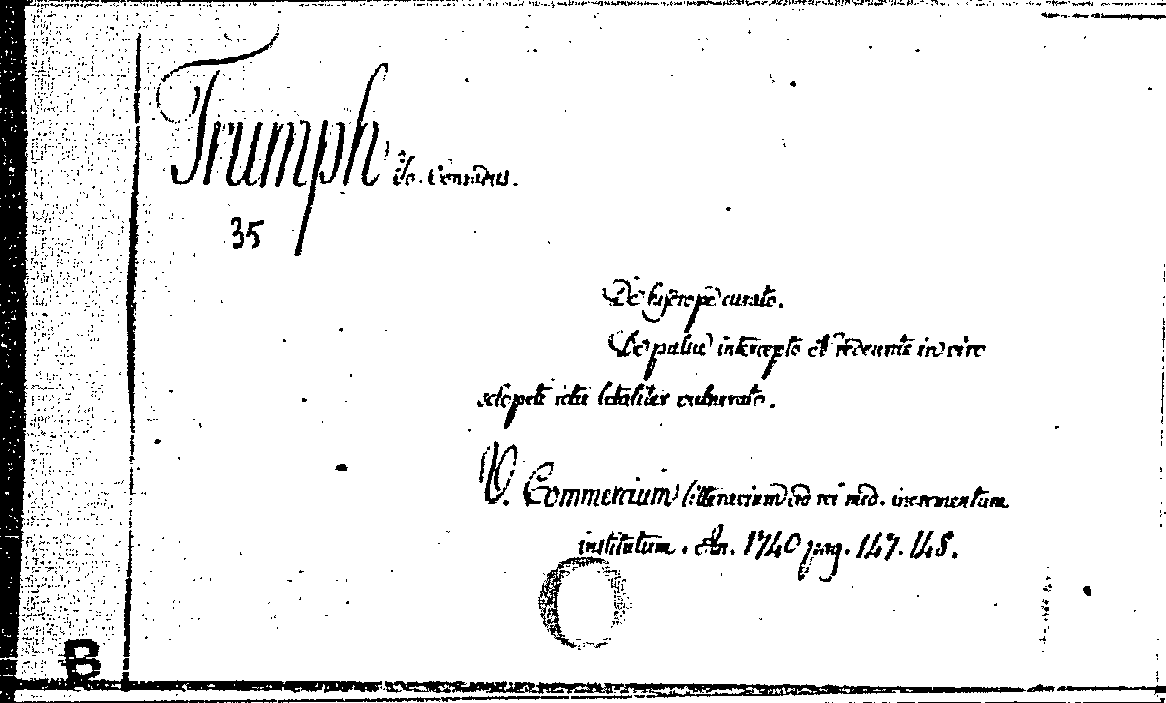 Trumph Jo. Conradus.
35
De hysterope curato.
De pulsu intercepto et redeunte in viro
sclopeti ictu letaliter vulnerato.
V. Commercium litterarium ad rei med. incrementum
institutum. An. 1740 pag. 147. 148.
B